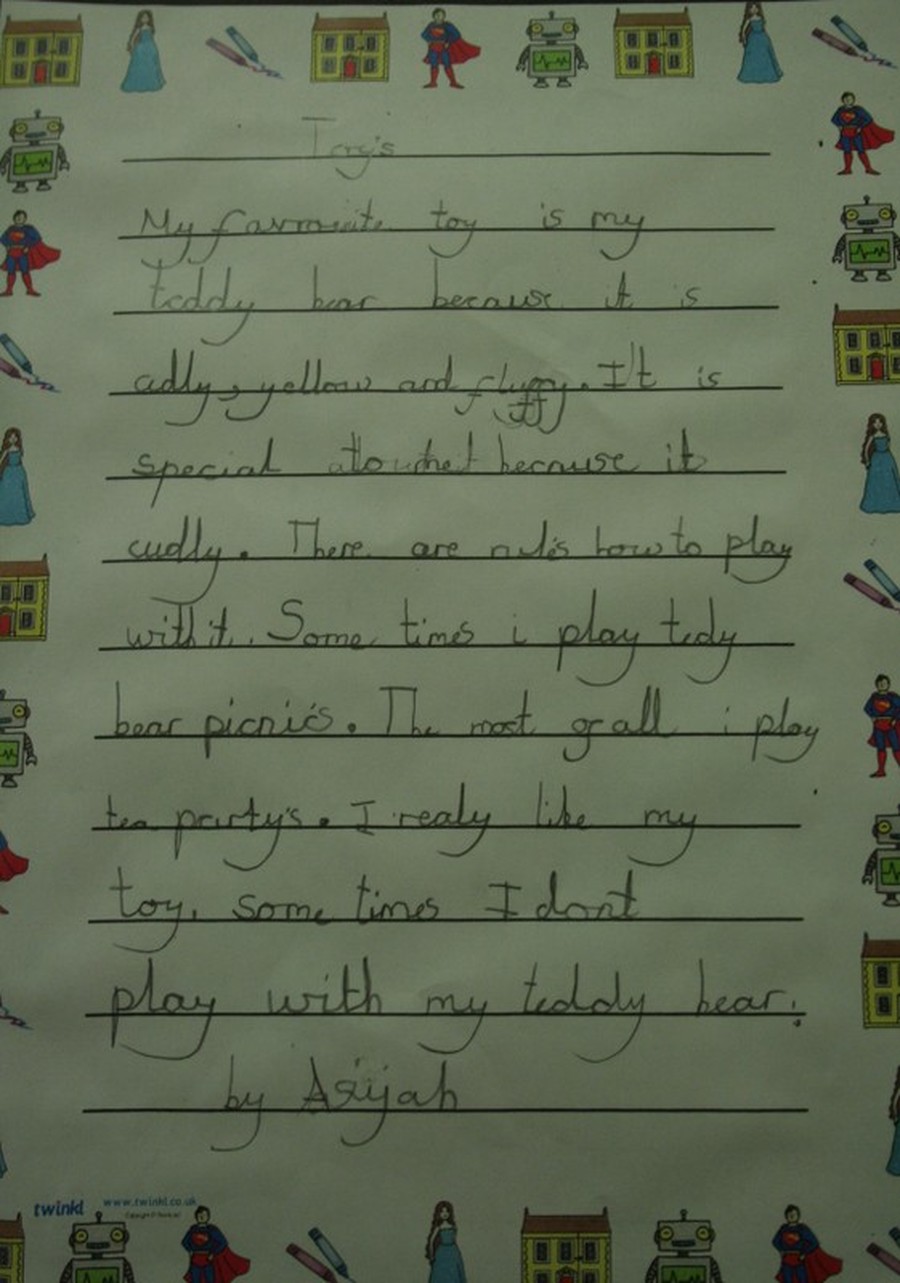 Toy's
My favrouite toy is my
teddy bear because it is
cudly, yellow and fluffy. It is
special because it
cudly. There are rules how to play
with it. Some times i play tedy
bear picnic's. The most of all i play
tea party's. I realy like my
toy, some times I dont
play with my teddy bear.
by Asijah
twinkl www.twinkl.co.uk